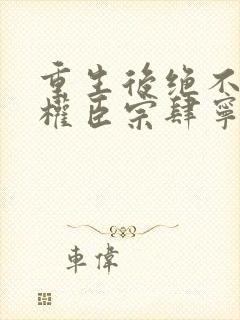 重生後绝不
權臣宗肆寧
車偉